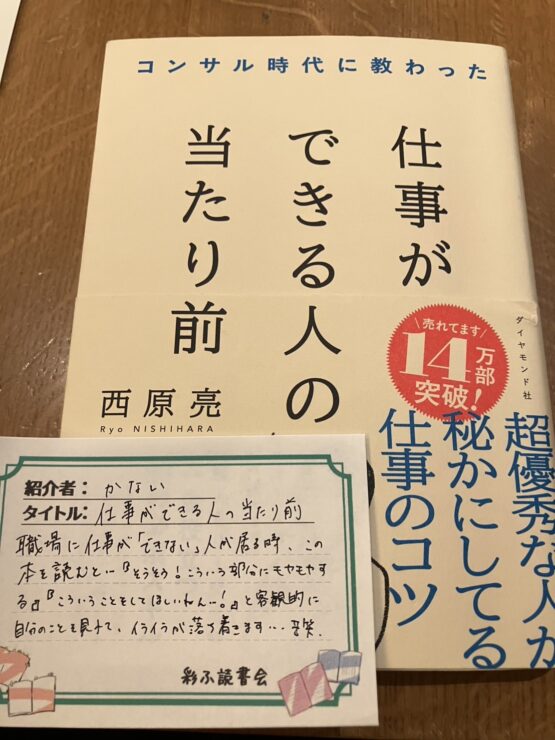 コンサル時代に教わった
仕事が
できる人の
当たり前
西原亮
Ryo NISHIHARA
ダイヤモンド社
\売れてます/
14万部
突破!
超優秀な人が
秘かにしてる
仕事のコツ
紹介者: かない
タイトル: 仕事ができる人の当たり前
職場に仕事が「できない」人が居る時、この
本を読むと…『そうそう!こういう部分にモヤモヤす
る』『こういうことをしてほしいねん…!』と客観的に
自分のことを見れて、イライラが落ち着きます…苦笑
彩ふ読書会